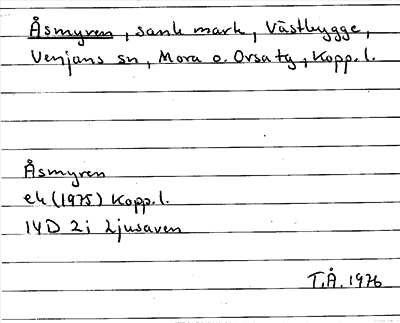 Åsmyren, sank mark, Västbygge,
Venjans sn, Mora o. Orsa tg, Kopp. l.
Åsmyren
ek (1975) Kopp. l.
14D 2i Ljusaven
T.Å. 1976